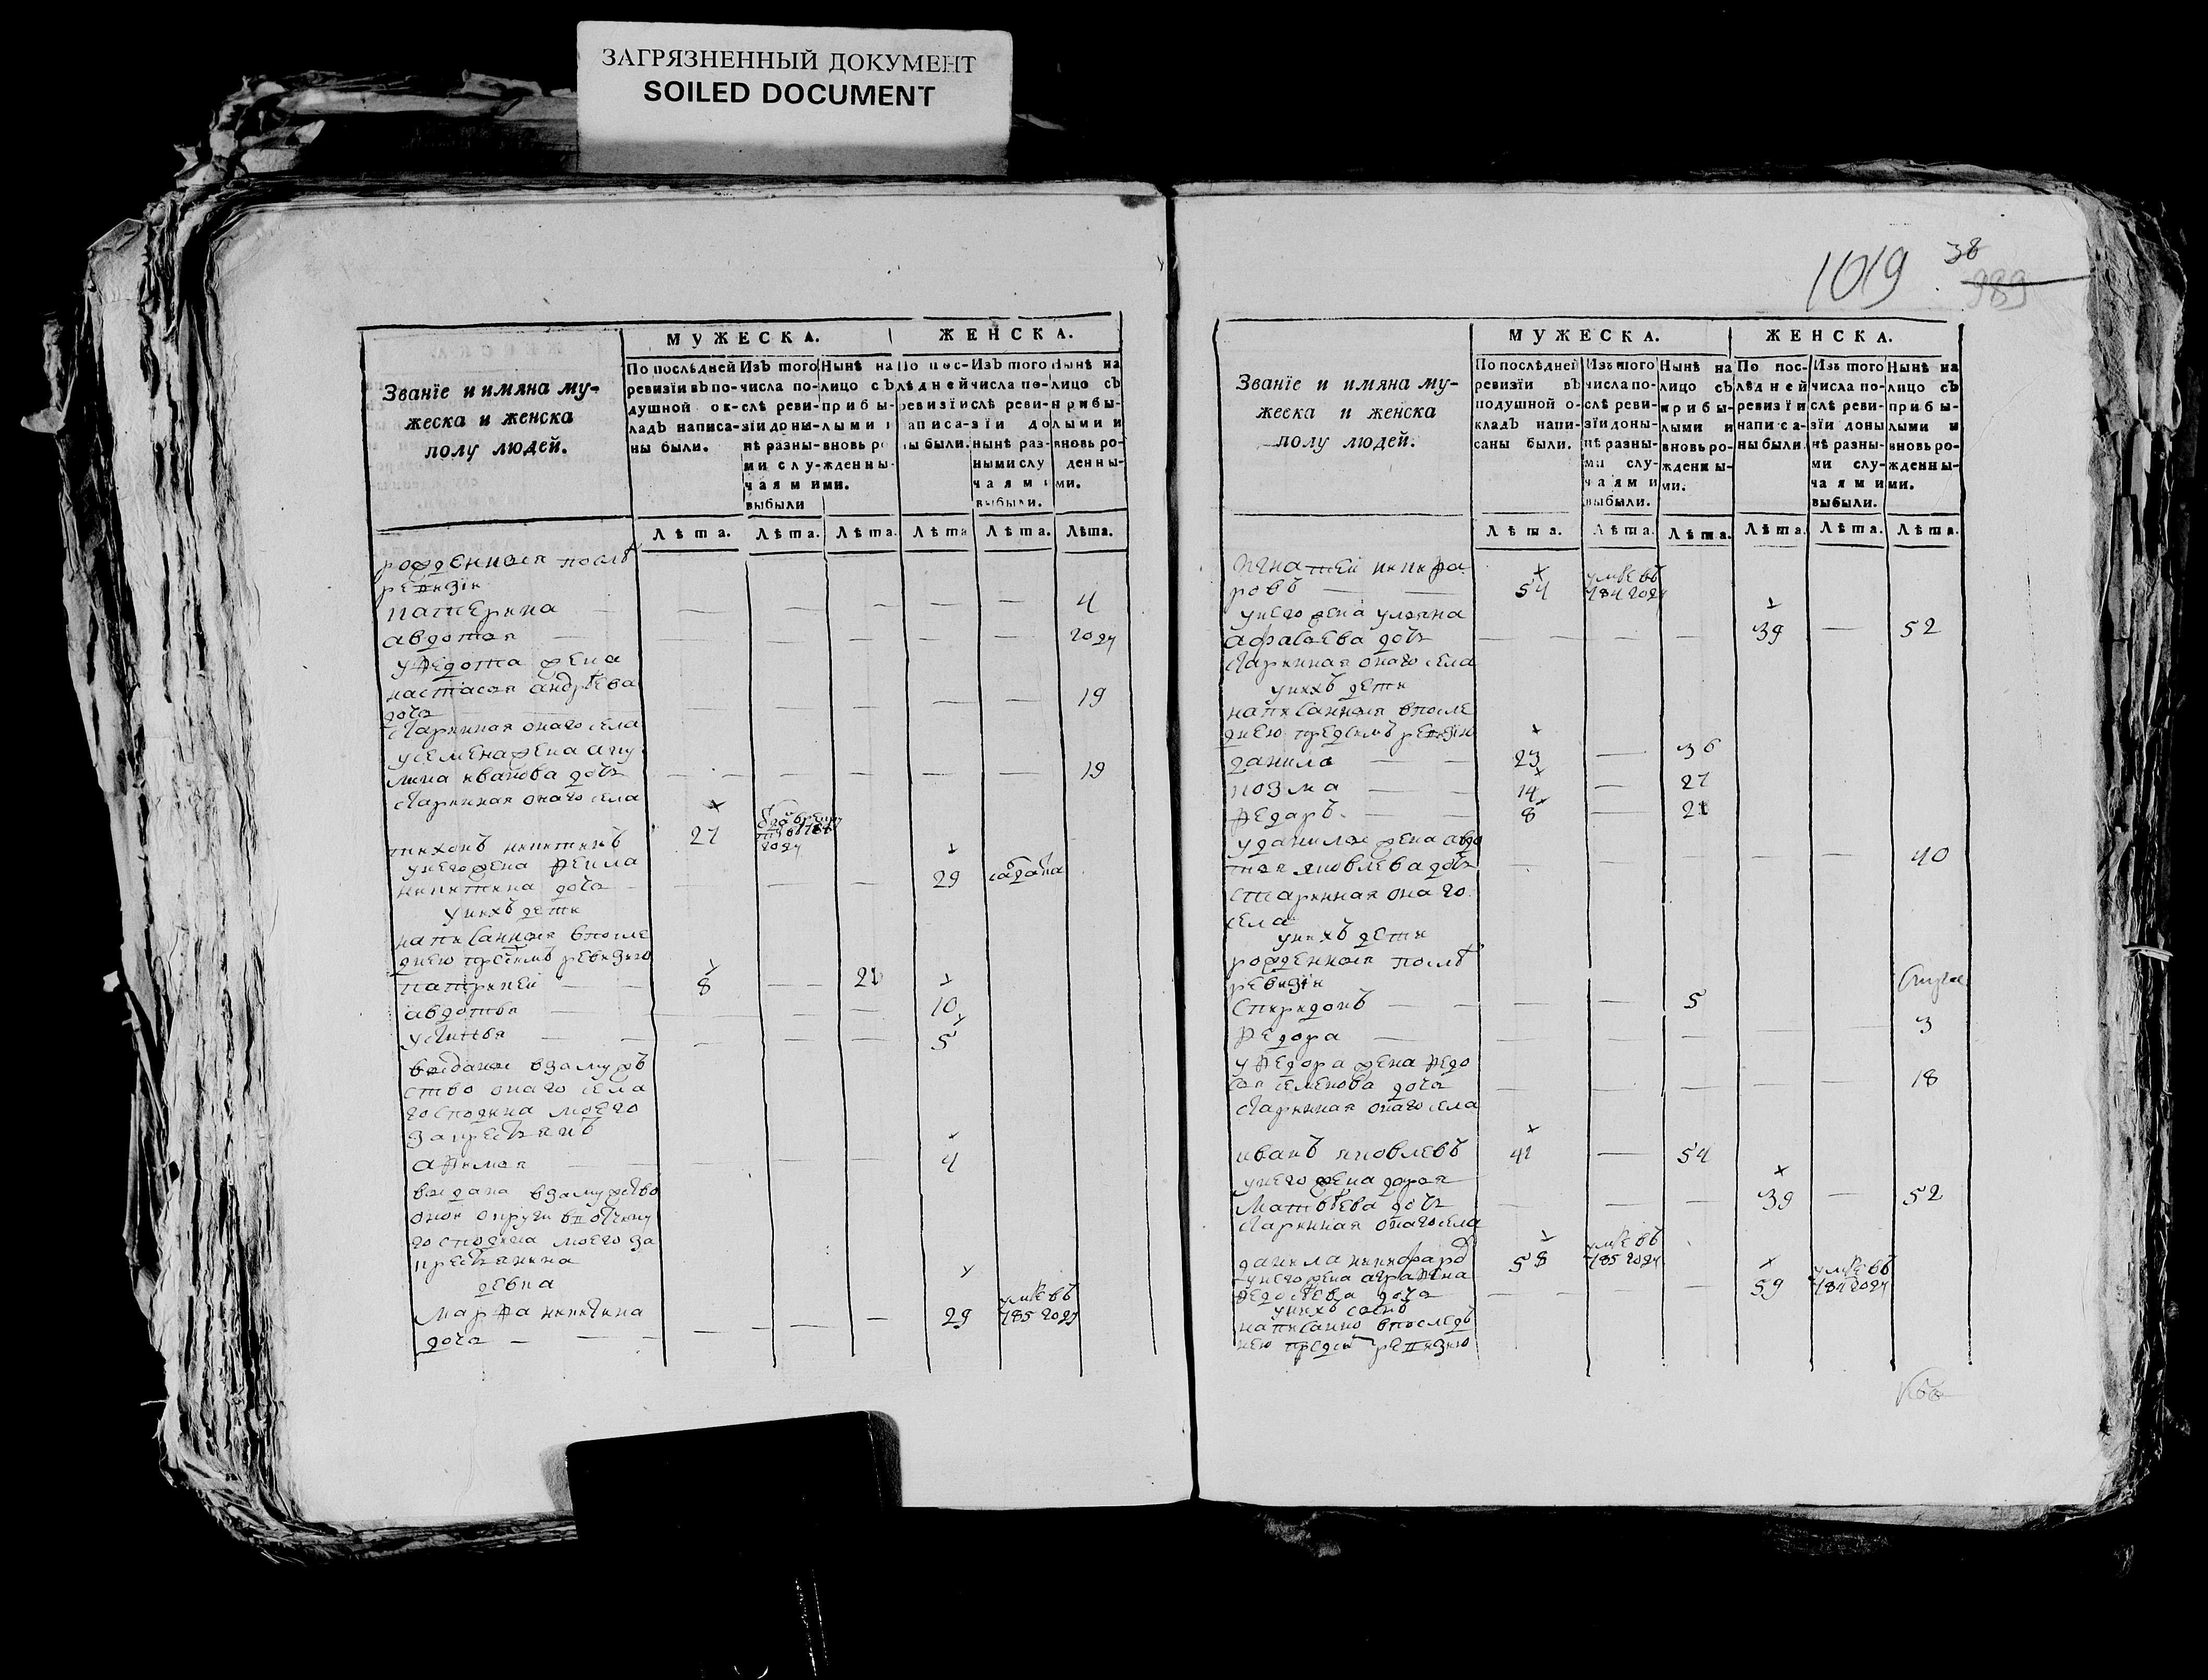 ЗАГРЯЗНЕННЫЙ ДОКУМЕНТ
SOILED DOCUMENT
Званїе и имяна му-
жеска и женска
полу людей.
МУЖЕСКА.
ЖЕНСКА.
По послѣдней
ревизїи въ по-
душной ок-
ладъ написа-
ны были.
Изъ того
числа по-
слѣ реви-
зїи доны-
нѣ разны-
ми слу-
чаями
выбыли
Нынѣ на
лицо съ
прибы-
лыми и
вновь ро
жденны-
ми.
По пос-
лѣдней
ревизїи
написа-
ны были.
Изъ того
числа по-
слѣ реви-
зїи до
нынѣ раз-
ными слу
чаями
выбыли.
Нынѣ на
лицо съ
прибы-
лыми и
вновь ро-
денны-
ми.
Лѣта. Лѣта. Лѣта. Лѣта Лѣта. Лѣта.
рожденныя послѣ
ревизїи
катерина 4
авдотья году
у федота жена
настасья андрѣева 19
дочь
старинная онаго села
у семена жена аку
лина иванова дочь 19
старинная онаго села
тихонъ никитинъ 27 году
у него жена фекла
никитина дочь 29
у нихъ дети
написанныя в после
днею предъ симъ ревизию
патрикей 8 21
авдотья 10
устинья 5
выданы в замуж
ство онаго села
господина моего
за крестьянъ
афимья 4
выдана в замужство
оной округи в вотчину
господина моего за
крестьянина
девка
марфа никитина 29 умре въ 785 году
дочь
1019 38
989
Званїе и имяна му-
жеска и женска
полу людей.
МУЖЕСКА.
ЖЕНСКА.
По послѣдней
ревизїи въ
подушной о-
кладъ напи-
саны были.
Изъ того
числа по-
слѣ реви-
зїи доны-
нѣ разны-
ми слу-
чаями
выбыли.
Нынѣ на
лицо съ
прибы-
лыми и
вновь ро-
жденны-
ми.
По пос-
лѣдней
ревизїи
написа-
ны были.
Изъ того
числа по-
слѣ реви-
зїи доны
нѣ разны-
ми слу-
чаями
выбыли.
Нынѣ на
лицо съ
прибы-
лыми и
вновь ро-
жденны-
ми.
Лѣта. Лѣта. Лѣта. Лѣта. Лѣта. Лѣта.
игнатей никифо
ровъ 54 умре въ 784 году
у него жена ульяна
дочь 39 52
старинная онаго села
у нихъ дети
написанныя в после
днею предъ симъ ревизїю
данила 23 36
козма 14 27
федаръ 8 21
у данилы жена авдо
тья яковлева дочь 40
старинная онаго
села
у нихъ дети
рожденныя послѣ
ревизїи
спиридонъ 5
федора 3
у федора жена федо
сья семенова дочь 18
старинная онаго села
иванъ яковлевъ 41 54
у него жена дарья
матвѣева дочь 39 52
старинная онаго села
данила никифоров 58 умре въ 785 году
у него жена аграфена
дочь 59 умре въ 784 году
у нихъ сынъ
написанно в последъ
нею предъ симъ ревизию